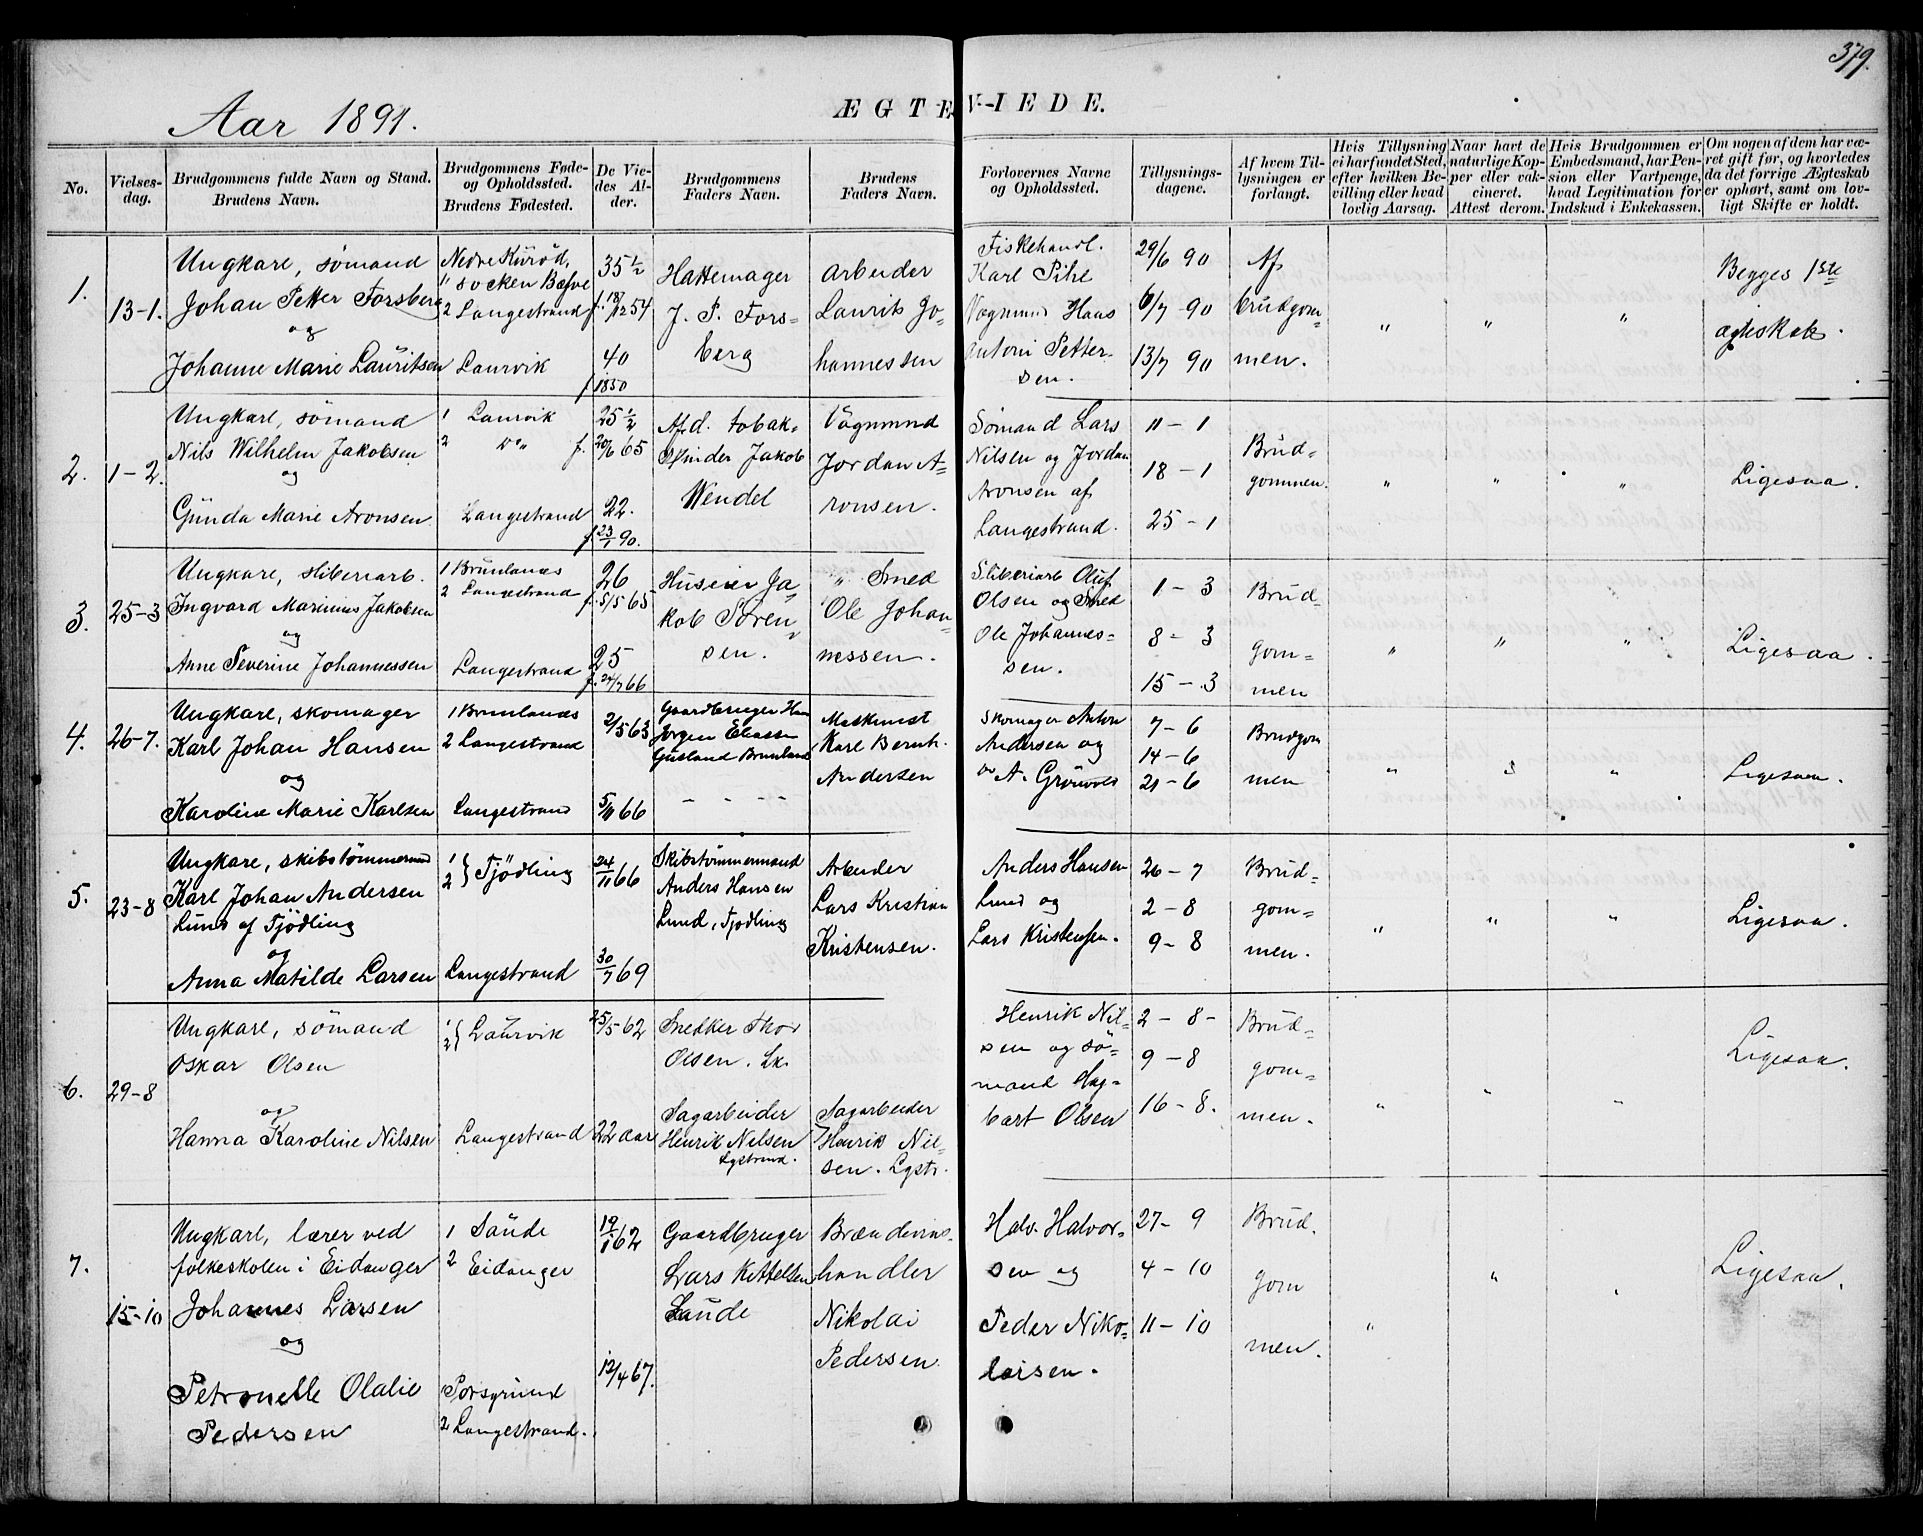 379.
Aar 1891.
ÆGTEVIEDE.
No.
Vielses-
dag.
Brudgommens fulde Navn og Stand.
Brudens Navn.
Brudgommens Føde-
og Opholdssted.
Brudens Fødested.
De Vie-
des Al-
der.
Brudgommens
Faders Navn.
Brudens
Faders Navn.
Forlovernes Navne
og Opholdssted.
Tillysnings-
dagene.
Af hvem Til-
lysningen er
forlangt.
Hvis Tillysning
ei har fundet Sted,
efter hvilken Be-
villing eller hvad
lovlig Aarsag.
Naar havt de
naturlige Kop-
per eller vak-
cineret.
Attest derom.
Hvis Brudgommen er
Embedsmand, har Pen-
sion eller Vartpenge,
hvad Legitimation for
Indskud i Enkekassen.
Om nogen af dem har væ-
ret gift før, og hvorledes
da det forrige Ægteskab
er ophørt, samt om lov-
ligt Skifte er holdt.
1.
13-1.
Ungkarl, sømand
Johan Petter Forsberg
og
Johanne Marie Lauritsen
Nedre Kurød,
1 socken Bæfve
2 Langestrand
Laurvik
35 1/2
f. 18/12 54
40
f. 1850
Hattemager
J. P. Fors-
berg
Arbeider
Laurits Jo-
hannessen
Fiskehandl.
Karl Pihl
Vognmand Hans
Antoni Petter-
sen.
29/6 90
6/7 90
13/7 90
Af
brudgom-
men.
" " "
Begges 1ste
ægteskab.
2.
1-2.
Ungkarl, sømand
Nils Wilhelm Jakobsen
og
Gunda Marie Aronsen
1 Laurvik
2 do
Langestrand
25 1/2
f. 20/6 65
22.
f. 23/1 90.
Afd. tobak-
spinder Jakob
Wendel
Vognmnd
Jordan A-
ronsen.
Sømand Lars
Nilsen og Jordan
Aronsen af
Langestrand.
11 - 1
18 - 1
25 - 1
Brud-
gommen.
" " "
Ligesaa.
3.
25-3
Ungkarl, sliberiarb.
Ingvard Marinius Jakobsen
og
Anne Severine Johannessen
1 Brunlanes
2 Langestrand
Langestrand
26
f. 5/5 65
25
f. 24/7 66
Huseier Ja-
kob Søren-
sen.
" Smed
Ole Johan-
nessen.
Sliberiarb Oluf
Olsen og Smed
Ole Johannes-
sen.
1 - 3
8 - 3
15 - 3
Brud-
gom-
men
" " "
Ligesaa.
4.
26-7.
Ungkarl, skomager
Karl Johan Hansen
og
Karoline Marie Karlsen
1 Brunlanes
2 Langestrand
Langestrand
2/5 63
5/11 66
Gaardbruger Hans
Jørgen Eliassen
Gusland Brunlanes
- - - -
Maskinist
Karl Bernh.
Andersen
Skomager Anton
Andersen og
do A.
7 - 6
14 - 6
21 - 6
Brudgom
men
" " "
Ligesaa.
5.
23-8
Ungkarl, skibstømmermd
Karl Johan Andersen
Lund af Tjödling
og
Anna Matilde Larsen
1
2 } Tjödling
Langestrand
24/11 66
30/7 69
Skibstømmermand
Anders Hansen
Lund, Tjodling
Arbeider
Lars Kristian
Kristensen.
Anders Hansen
Lund og
Lars Kristensen.
26 - 7
2 - 8
9 - 8
Brud-
gom-
men.
" " "
Ligesaa.
6.
29-8
Ungkarl, sømand
Oskar Olsen
og
Hanna Karoline Nilsen
1
2 } Laurvik
Langestrand
25/5 62
22 aar
Snedker Thor
Olsen. Lk.
Sagarbeider
Henrik Nilsen
Lgstrand.
Sagarbeider
Henrik Nil-
sen. Lgstr.
Henrik Nil-
sen og sø-
mand Hag-
bart Olsen
2 - 8 -
9 - 8
16 - 8.
Brud-
gom-
men.
" " "
Ligesaa.
7.
15-10
Ungkarl, lærer ved
folkeskolen i Eidanger
Johannes Larsen
og
Petronelle Olalie
Pedersen
1 Saude
2 Eidanger
1 Porsgrund
2 Langestrand.
19/1 62
12/4 67.
Gaardbruger
Lars Kittelsen
Saude
Brændevins-
handler
Nikolai
Pedersen.
Halv. Halvor-
sen og
Peder Niko-
laisen.
27 - 9
4 - 10
11 - 10
Brud.
gom
men.
" " "
Ligesaa.